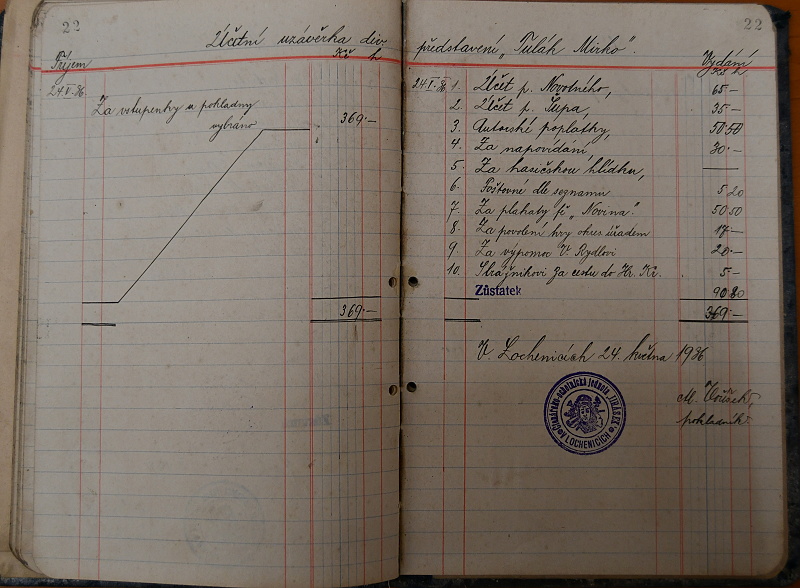 22
Účetní uzávěrka div.
Příjem
Kč h
24.V.36.
Za vstupenky u pokladny
vybráno
369·—
369·—
22
představení „Tulák Mirko".
Vydání
Kč h
24.V.36. 1. Účet p. Novotného, 65—
2. Účet p. Šupa, 35—
3. Autorské poplatky, 50·50
4. Za napovídání 30·—
5. Za hasičskou hlídku, —
6. Poštovné dle seznamu 5.20
7. Za plakáty fě „Novina". 50.50
8. Za povolení hry okres. úřadem 17—
9. Za výpomoc V. Rydlovi 20·—
10. Strážníkovi za cestu do Hr. Kr. 5—
Zůstatek 90 80
369·—
V Lochenicích 24. května 1936
M.
pokladník.
Čtenářsko-ochotnická jednota „JIRÁSEK"
v LOCHENICÍCH